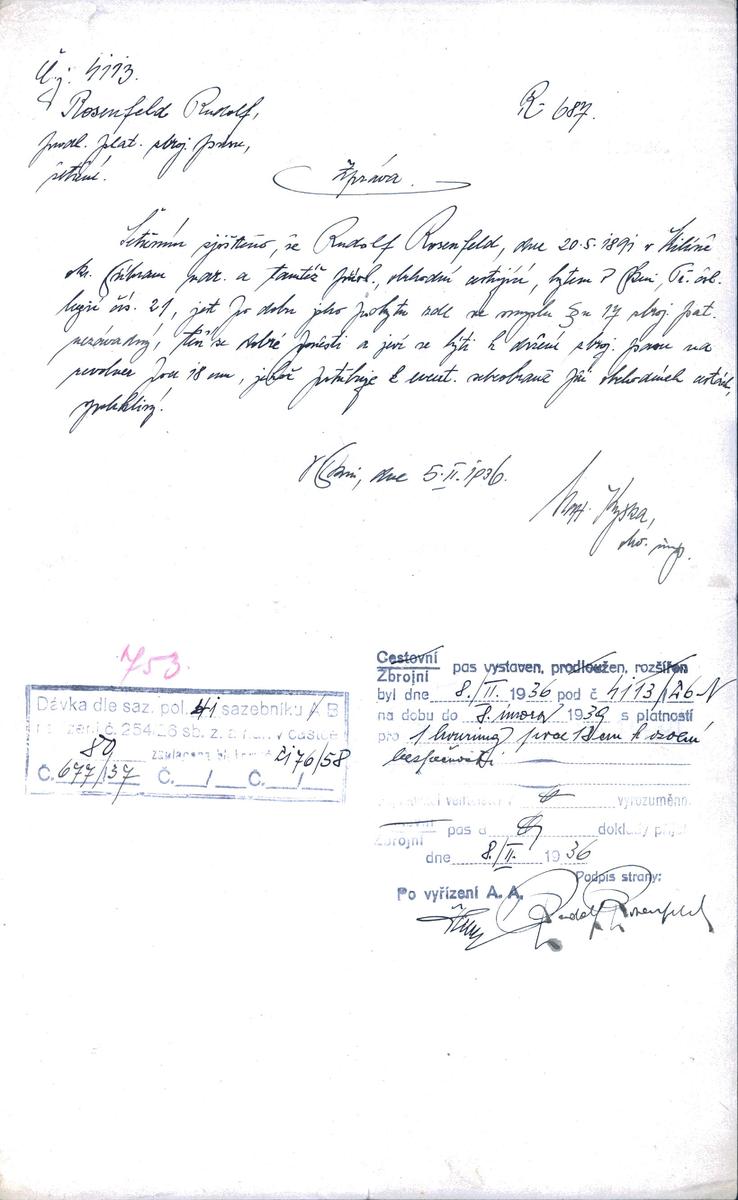 Č.j. 4113.
Rosenfeld Rudolf,
prodl. plat. zbroj. pasu,
šetření.
R- 687.
Zpráva.
Šetřením zjištěno, že Rudolf Rosenfeld, dne 20.5.1891 v Milíně
okr. Příbram nar. a tamtéž přísl., obchodní cestující, bytem v Plzni, Tř. čsl.
legií čís. 21, jest po dobu jeho pobytu zde ve smyslu § 17 zbroj. pat.
nezávadný, těší se dobré pověsti a jeví se býti k držení zbroj. pasu na
revolver pod 18 cm, jehož potřebuje k event. sebeobraně při obchodních cestách,
spolehlivý.
V Plzni, dne 5.II.1936.
753
Dávka dle saz. pol. 41 sazebníku A B
nařízení č. 254/26 sb. z. a n. v částce
80 zaplacena 2176/58
Č. 677/37 Č. __/__ Č. __/__
Cestovní
Zbrojní pas vystaven, prodloužen, rozšířen
byl dne 8./II. 1936 pod č 4113/26-N
na dobu do 8. února 1939 s platností
pro 1 browning pod 18 cm k osobní
bezpečnosti
vyrozuměno.
Zbrojní pas a doklady přijal
dne 8./II. 1936
Podpis strany:
Po vyřízení A. A.
Rudolf Rosenfeld